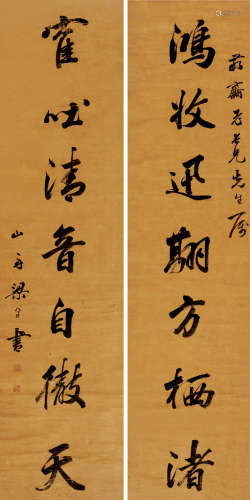 齋老長兄先生屬
鴻收迅翮方栖渚
寉吐清音自徹天
山舟梁同書